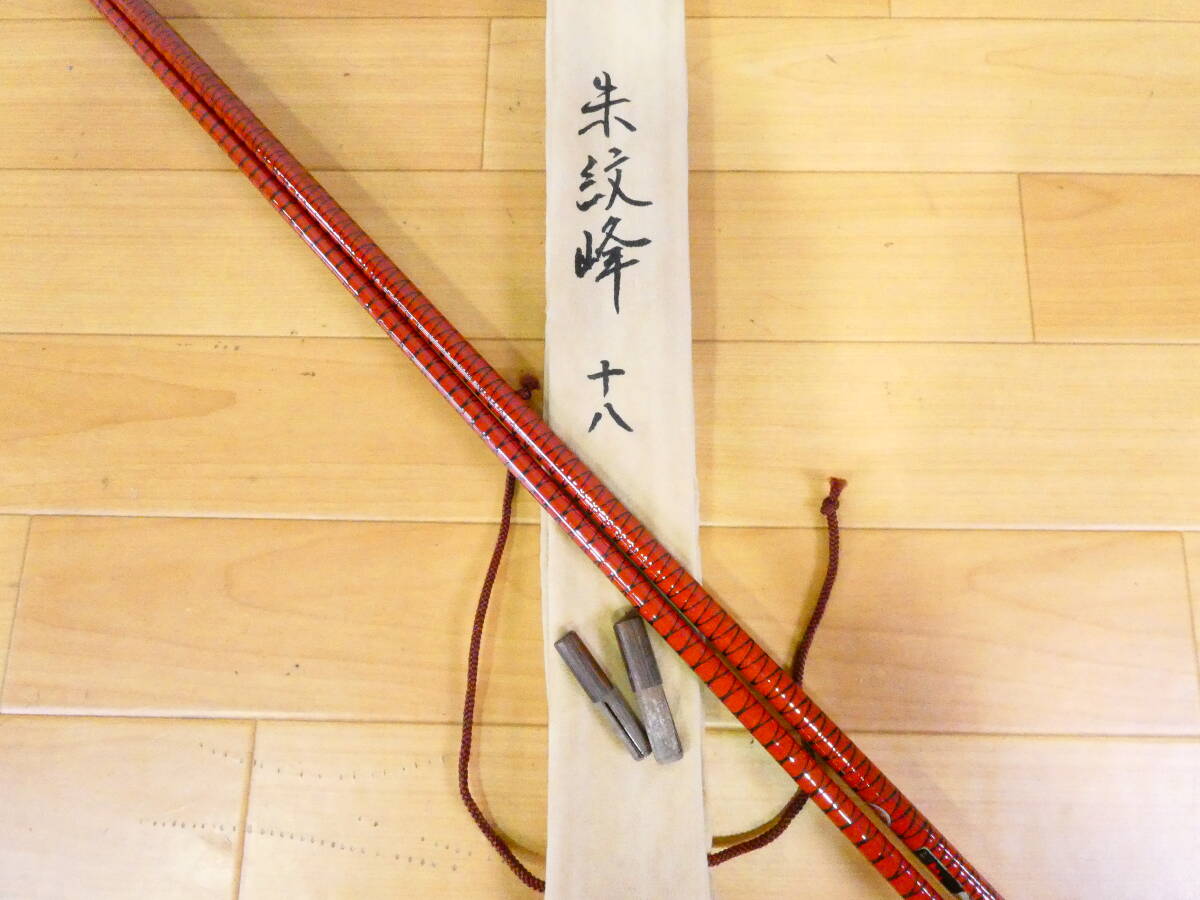 朱紋峰 十八